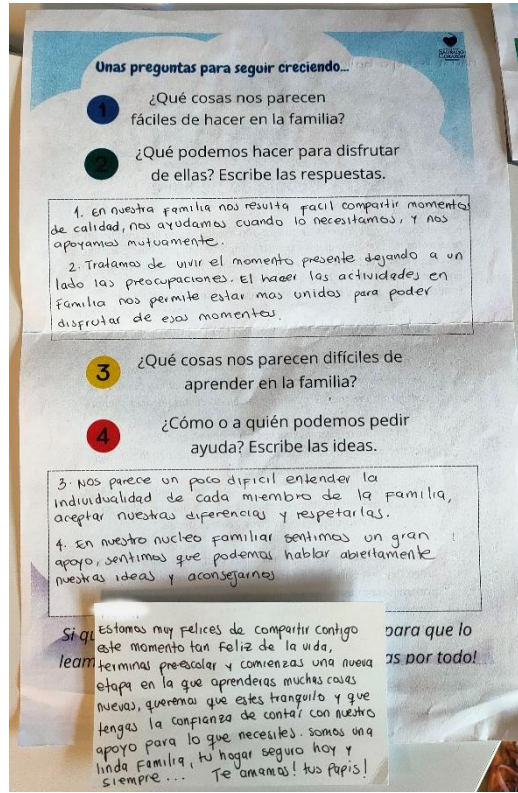 Unas preguntas para seguir creciendo...
SAGRADO
CORAZÓN
1
¿Qué cosas nos parecen
fáciles de hacer en la familia?
2
¿Qué podemos hacer para disfrutar
de ellas? Escribe las respuestas.
1. En nuestra familia nos resulta facil compartir momentos
de calidad, nos ayudamos cuando lo necesitamos, y nos
apoyamos mutuamente.
2. Tratamos de vivir el momento presente dejando a un
lado las preocupaciones. El hacer las actividades en
familia nos permite estar mas unidos para poder
disfrutar de esos momentos.
3
¿Qué cosas nos parecen difíciles de
aprender en la familia?
4
¿Cómo o a quién podemos pedir
ayuda? Escribe las ideas.
3. Nos parece un poco dificil entender la
individualidad de cada miembro de la familia,
aceptar nuestras diferencias y respetarlas.
4. En nuestro nucleo familiar sentimos un gran
apoyo, sentimos que podemos hablar abiertamente
nuestras ideas y aconsejarnos
Si qu
para que lo
leam
as por todo!
Estamos muy felices de compartir contigo
este momento tan feliz de la vida,
terminas preescolar y comienzas una nueva
etapa en la que aprenderas muchas cosas
nuevas, queremos que estes tranquilo y que
tengas la confianza de contar con nuestro
apoyo para lo que necesites. somos una
linda familia, tu hogar seguro hoy y
siempre... Te amamos! tus Papis!